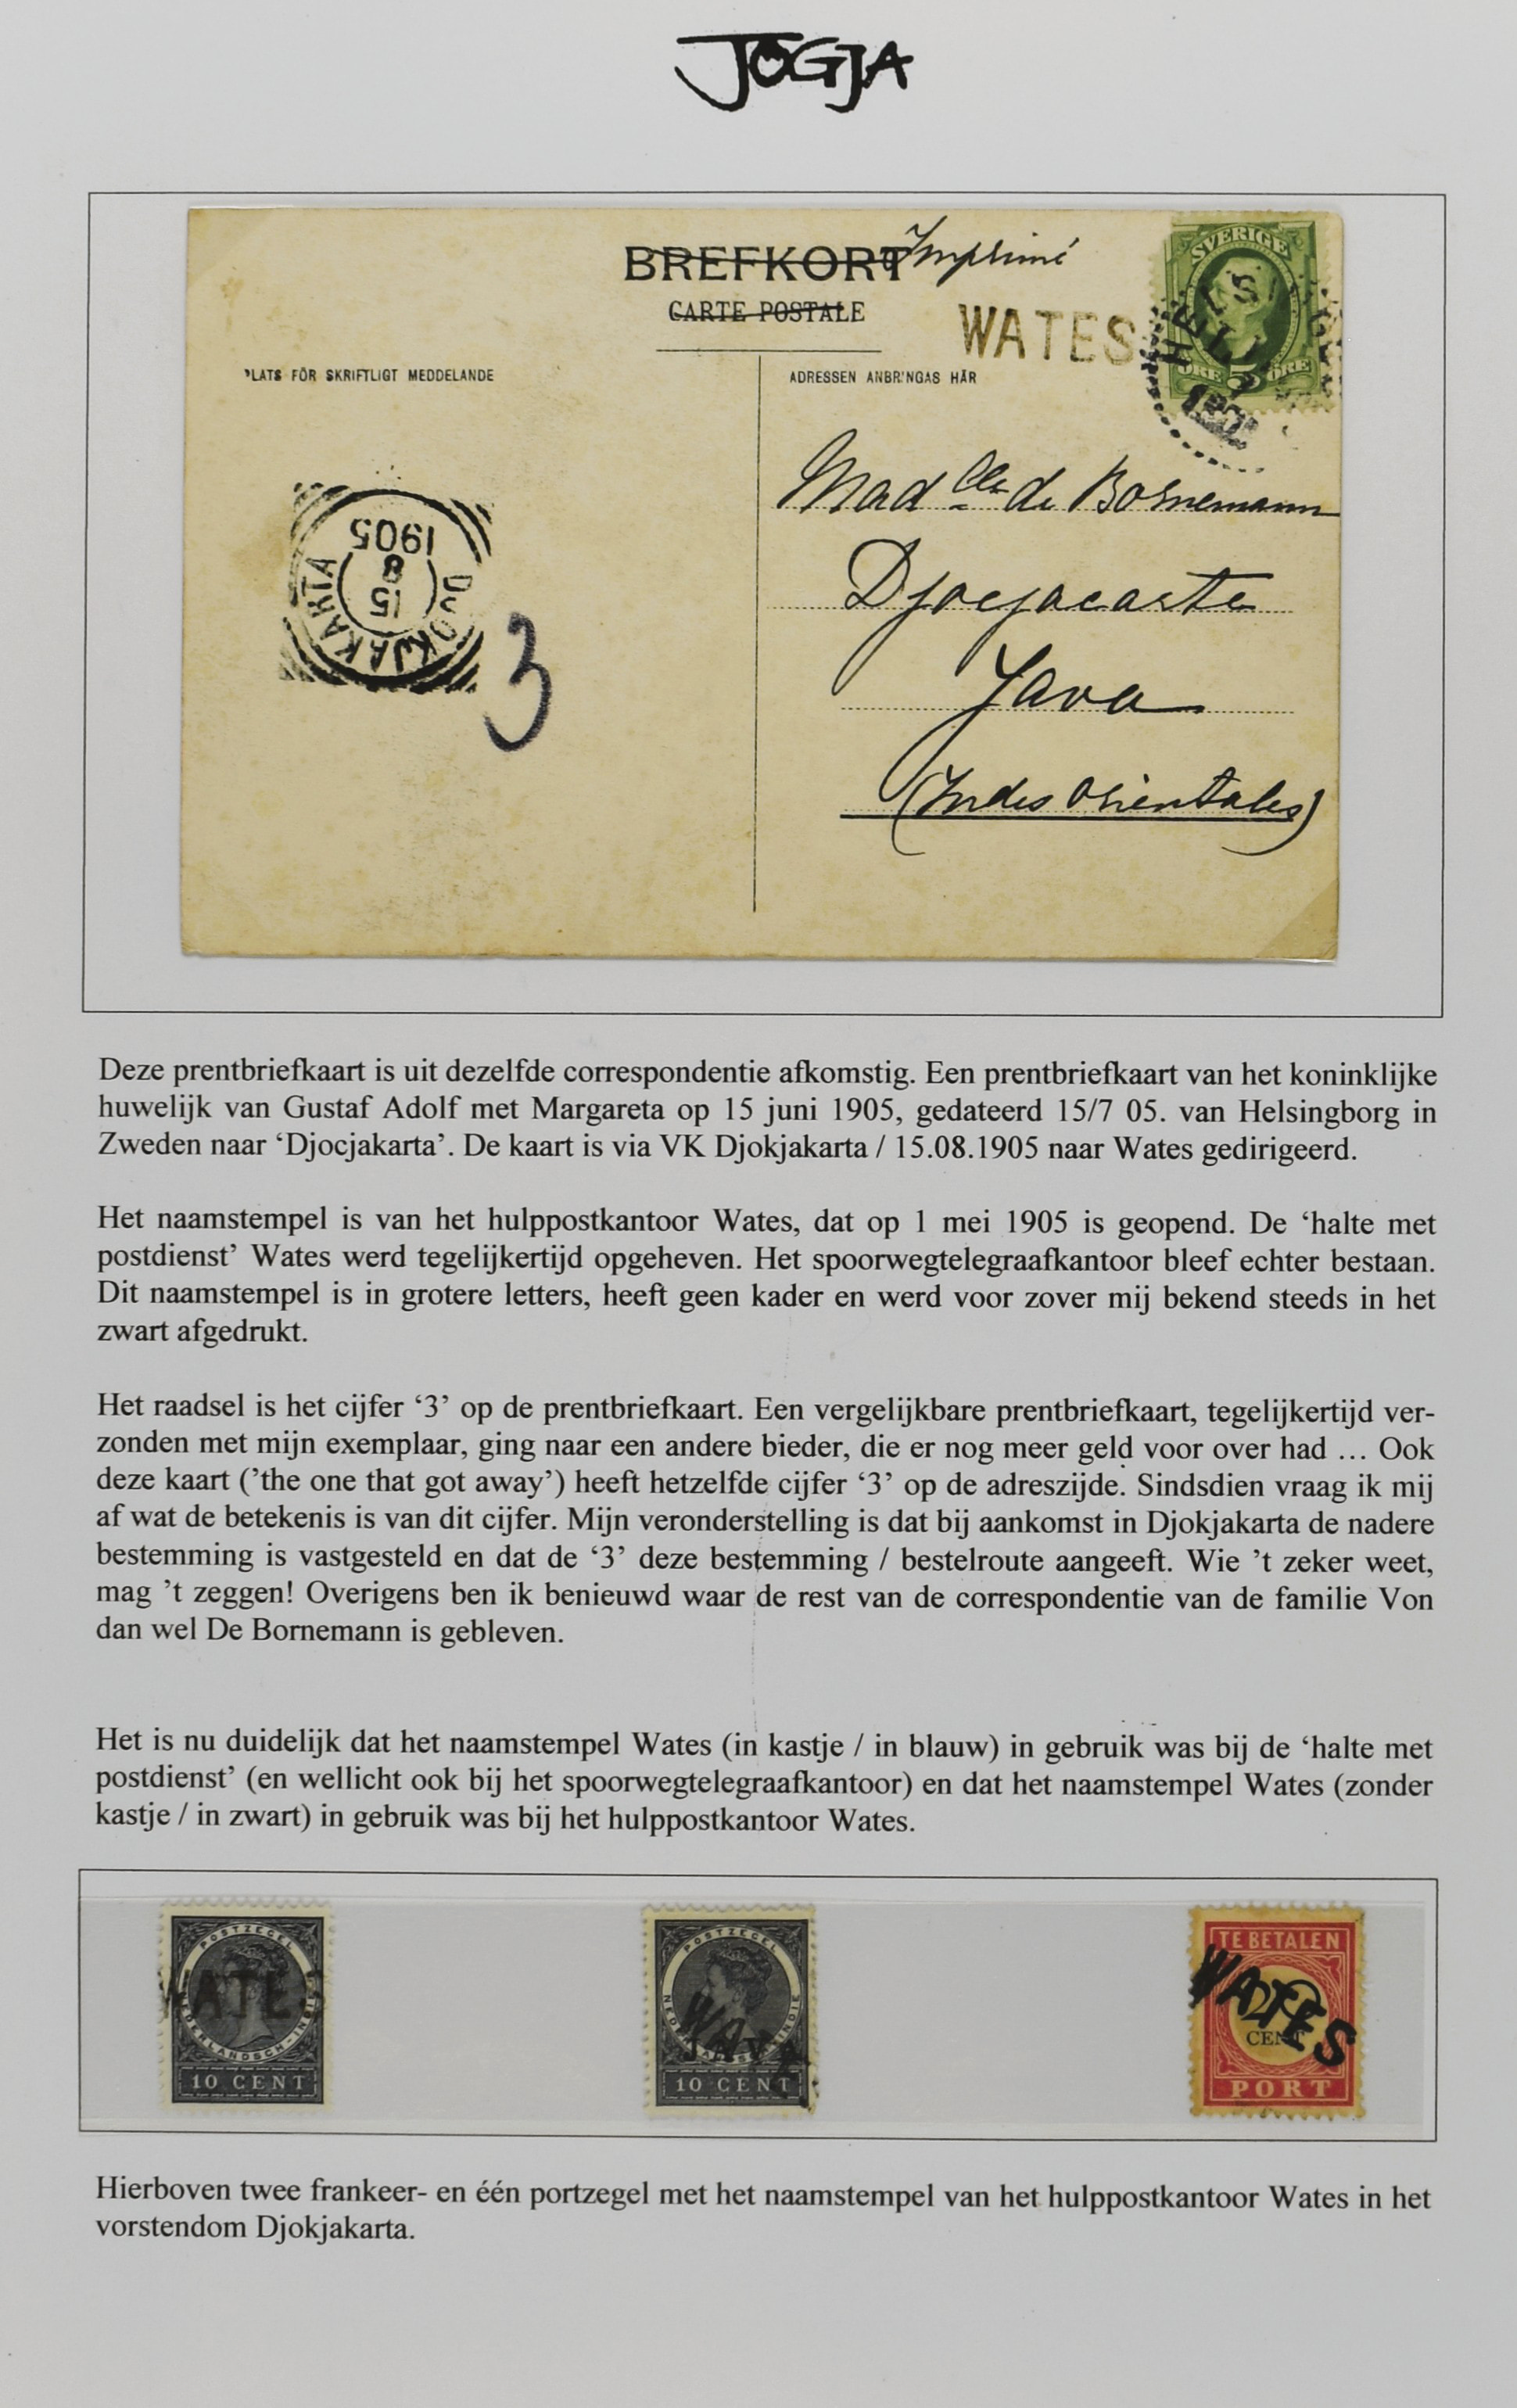 JOGJA
BREFKORT Imprimé
CARTE POSTALE
WATES
SVERIGE
5
ÖRE ÖRE
PLATS FÖR SKRIFTLIGT MEDDELANDE
ADRESSEN ANBRINGAS HÄR
DJOKJAKARTA
15
8
1905
3
Mad lle de Bornemann
Djocjacarta
Java
(Indes Orientales)
Deze prentbriefkaart is uit dezelfde correspondentie afkomstig. Een prentbriefkaart van het koninklijke
huwelijk van Gustaf Adolf met Margareta op 15 juni 1905, gedateerd 15/7 05. van Helsingborg in
Zweden naar ‘Djocjakarta’. De kaart is via VK Djokjakarta / 15.08.1905 naar Wates gedirigeerd.
Het naamstempel is van het hulppostkantoor Wates, dat op 1 mei 1905 is geopend. De ‘halte met
postdienst’ Wates werd tegelijkertijd opgeheven. Het spoorwegtelegraafkantoor bleef echter bestaan.
Dit naamstempel is in grotere letters, heeft geen kader en werd voor zover mij bekend steeds in het
zwart afgedrukt.
Het raadsel is het cijfer ‘3’ op de prentbriefkaart. Een vergelijkbare prentbriefkaart, tegelijkertijd ver-
zonden met mijn exemplaar, ging naar een andere bieder, die er nog meer geld voor over had … Ook
deze kaart (’the one that got away’) heeft hetzelfde cijfer ‘3’ op de adreszijde. Sindsdien vraag ik mij
af wat de betekenis is van dit cijfer. Mijn veronderstelling is dat bij aankomst in Djokjakarta de nadere
bestemming is vastgesteld en dat de ‘3’ deze bestemming / bestelroute aangeeft. Wie ’t zeker weet,
mag ’t zeggen! Overigens ben ik benieuwd waar de rest van de correspondentie van de familie Von
dan wel De Bornemann is gebleven.
Het is nu duidelijk dat het naamstempel Wates (in kastje / in blauw) in gebruik was bij de ‘halte met
postdienst’ (en wellicht ook bij het spoorwegtelegraafkantoor) en dat het naamstempel Wates (zonder
kastje / in zwart) in gebruik was bij het hulppostkantoor Wates.
POSTZEGEL
NEDERLANDSCH-INDIE
WATES
10 CENT
POSTZEGEL
NEDERLANDSCH-INDIE
JAVA
10 CENT
TE BETALEN
WATES
20
CENT
PORT
Hierboven twee frankeer- en één portzegel met het naamstempel van het hulppostkantoor Wates in het
vorstendom Djokjakarta.